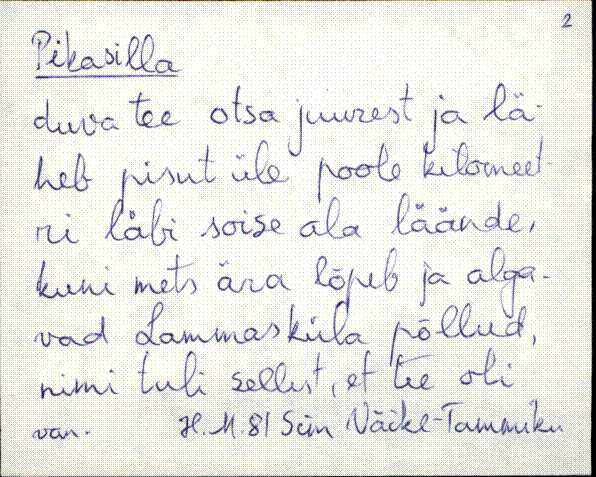 2
Pikasilla
duva tee otsa juurest ja lä-
heb pisut üle poole kilomeet-
ri läbi soise ala läände,
kuni mets ära lõpeb ja alga-
vad Lammasküla põllud,
nimi tuli sellest, et tee oli
van. H. M. 81 Siin Väike-Tammiku